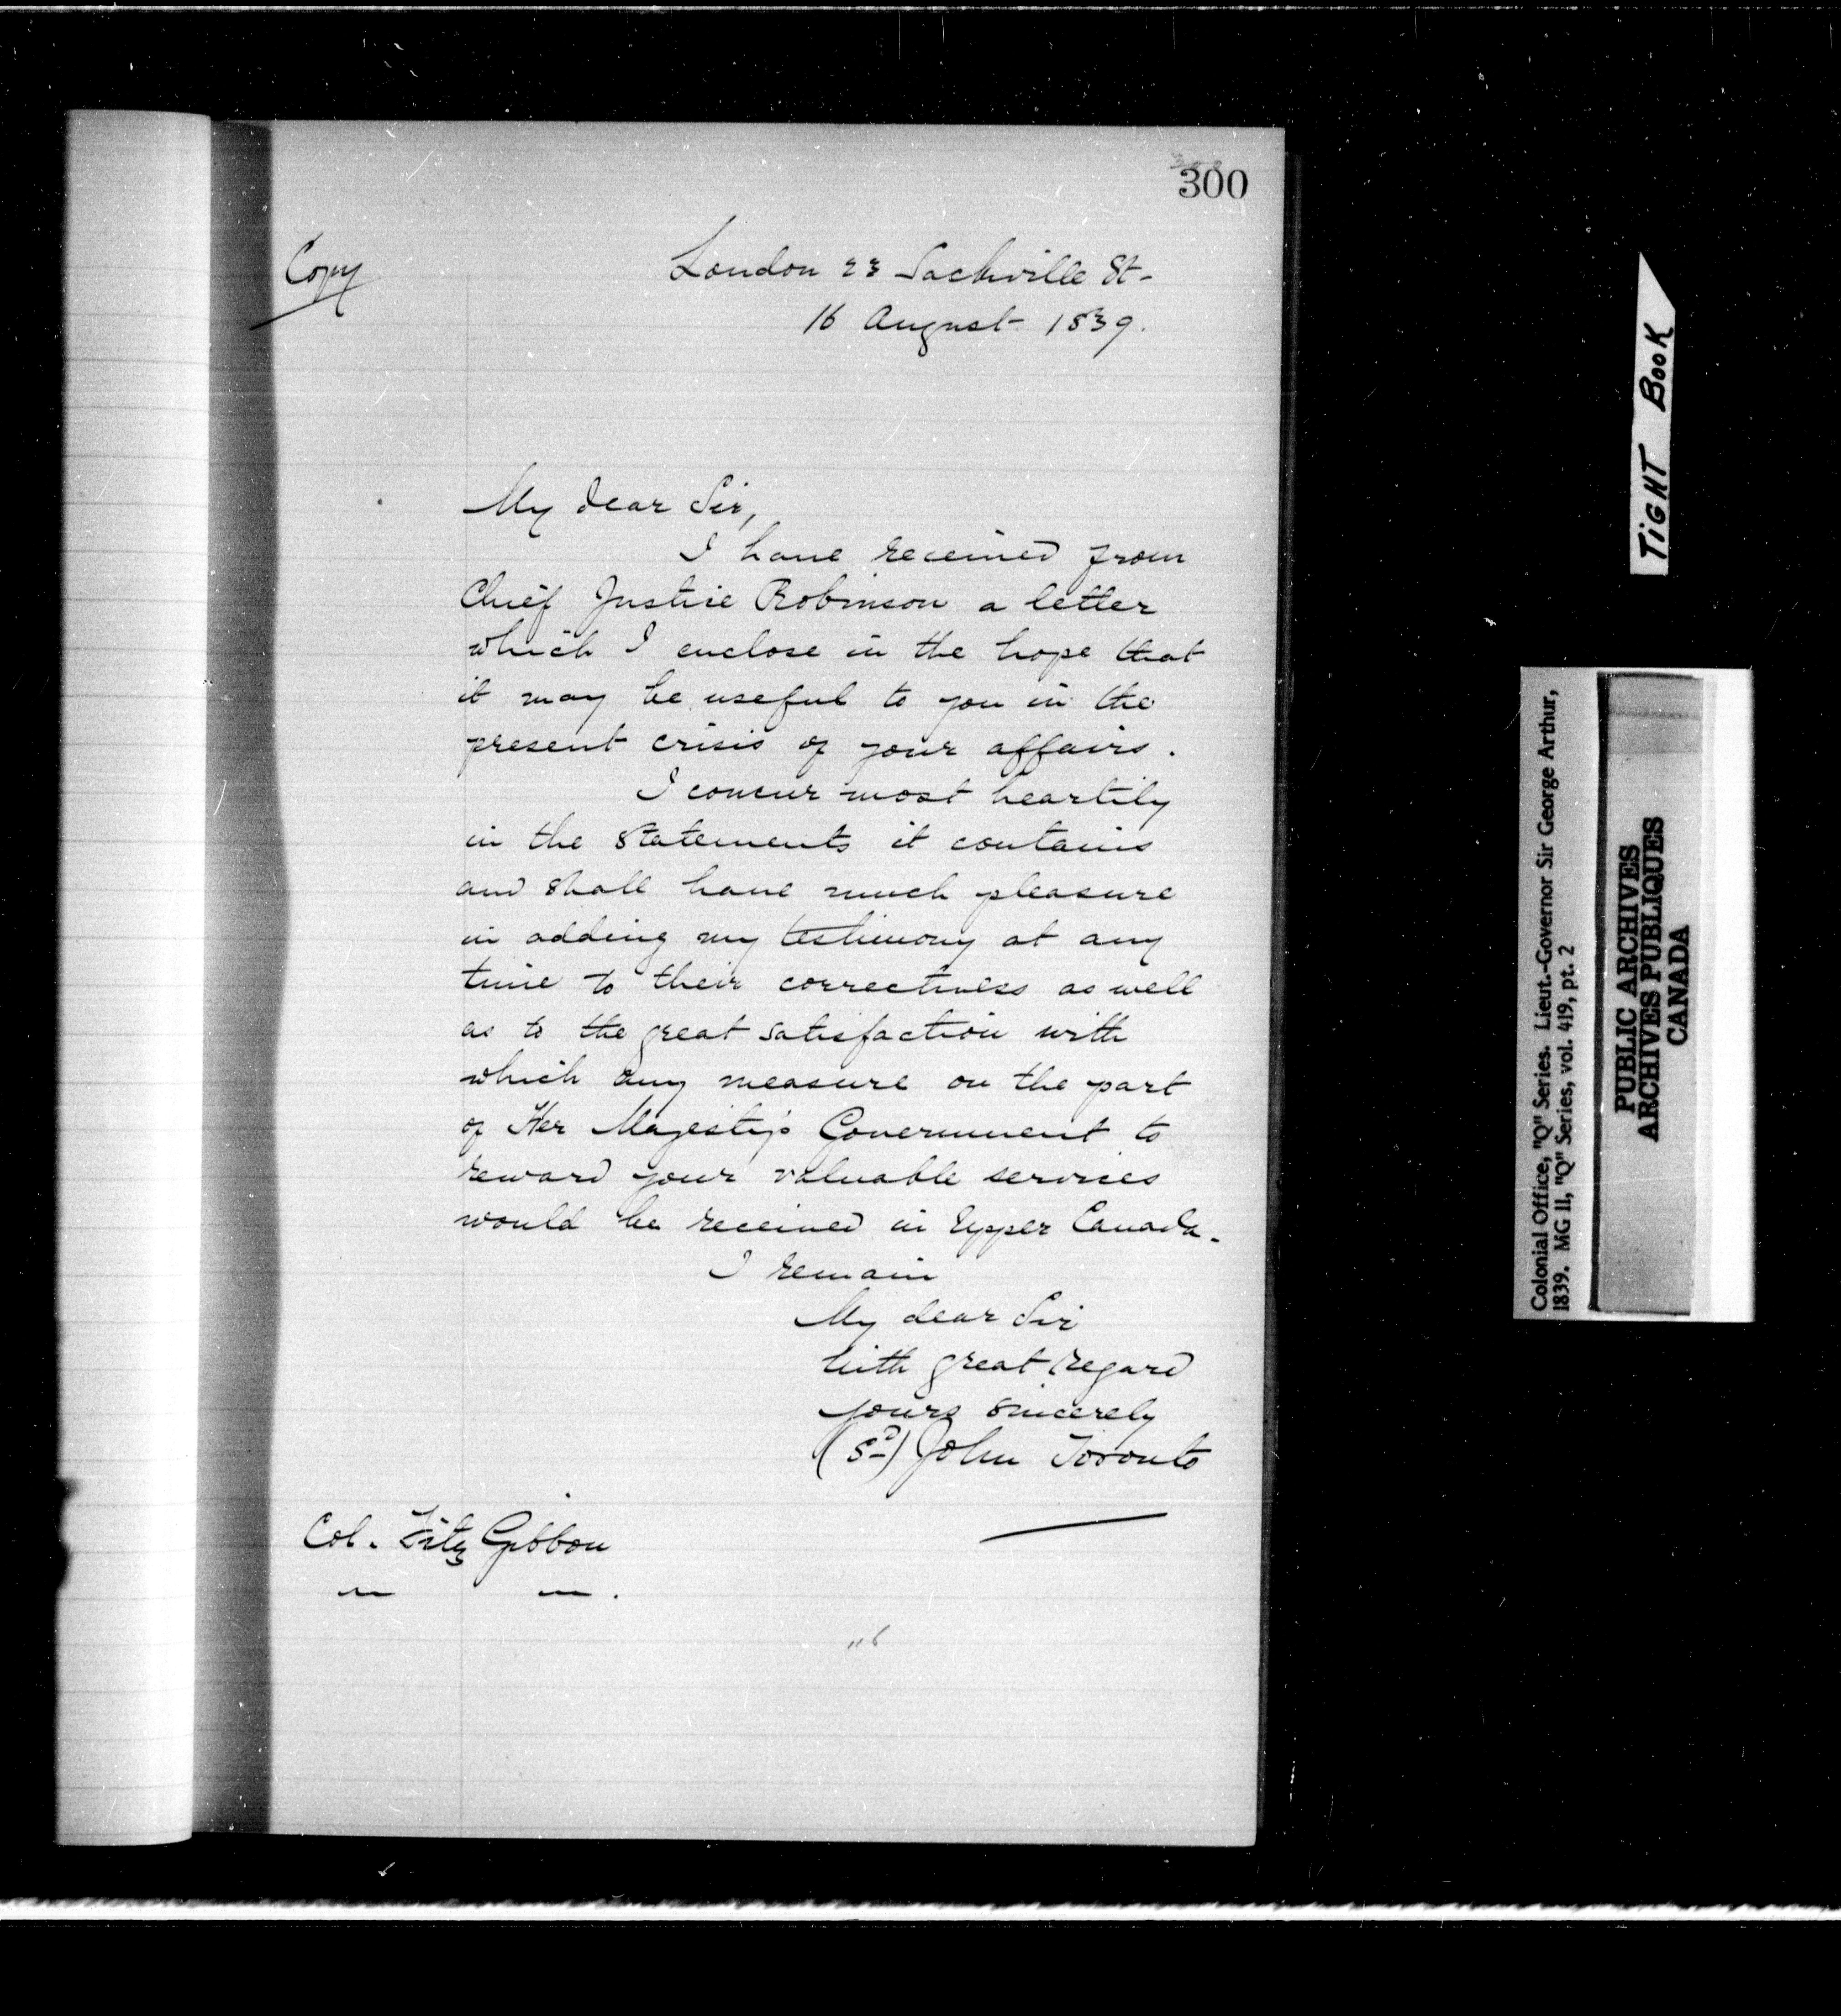 300
Copy
London 23 Sackville St-
16 August 1839.
My dear Sir,
I have received from
Chief Justice Robinson a letter
which I enclose in the hope that
it may be useful to you in the
present crisis of your affairs.
I concur most heartily
in the statements it contains
and shall have much pleasure
in adding my testimony at any
time to their correctness as well
as to the great satisfaction with
which any measure on the part
of Her Majesty's Government to
reward your valuable services
would be received in Upper Canada.
I remain
My dear Sir
With great regard
yours sincerely
(Sd) John Toronto
Col. Fitz Gibbon
TIGHT BOOK
Colonial Office, "Q" Series. Lieut.-Governor Sir George Arthur,
1839. MG 11, "Q" Series, vol. 419, pt. 2
PUBLIC ARCHIVES
ARCHIVES PUBLIQUES
CANADA